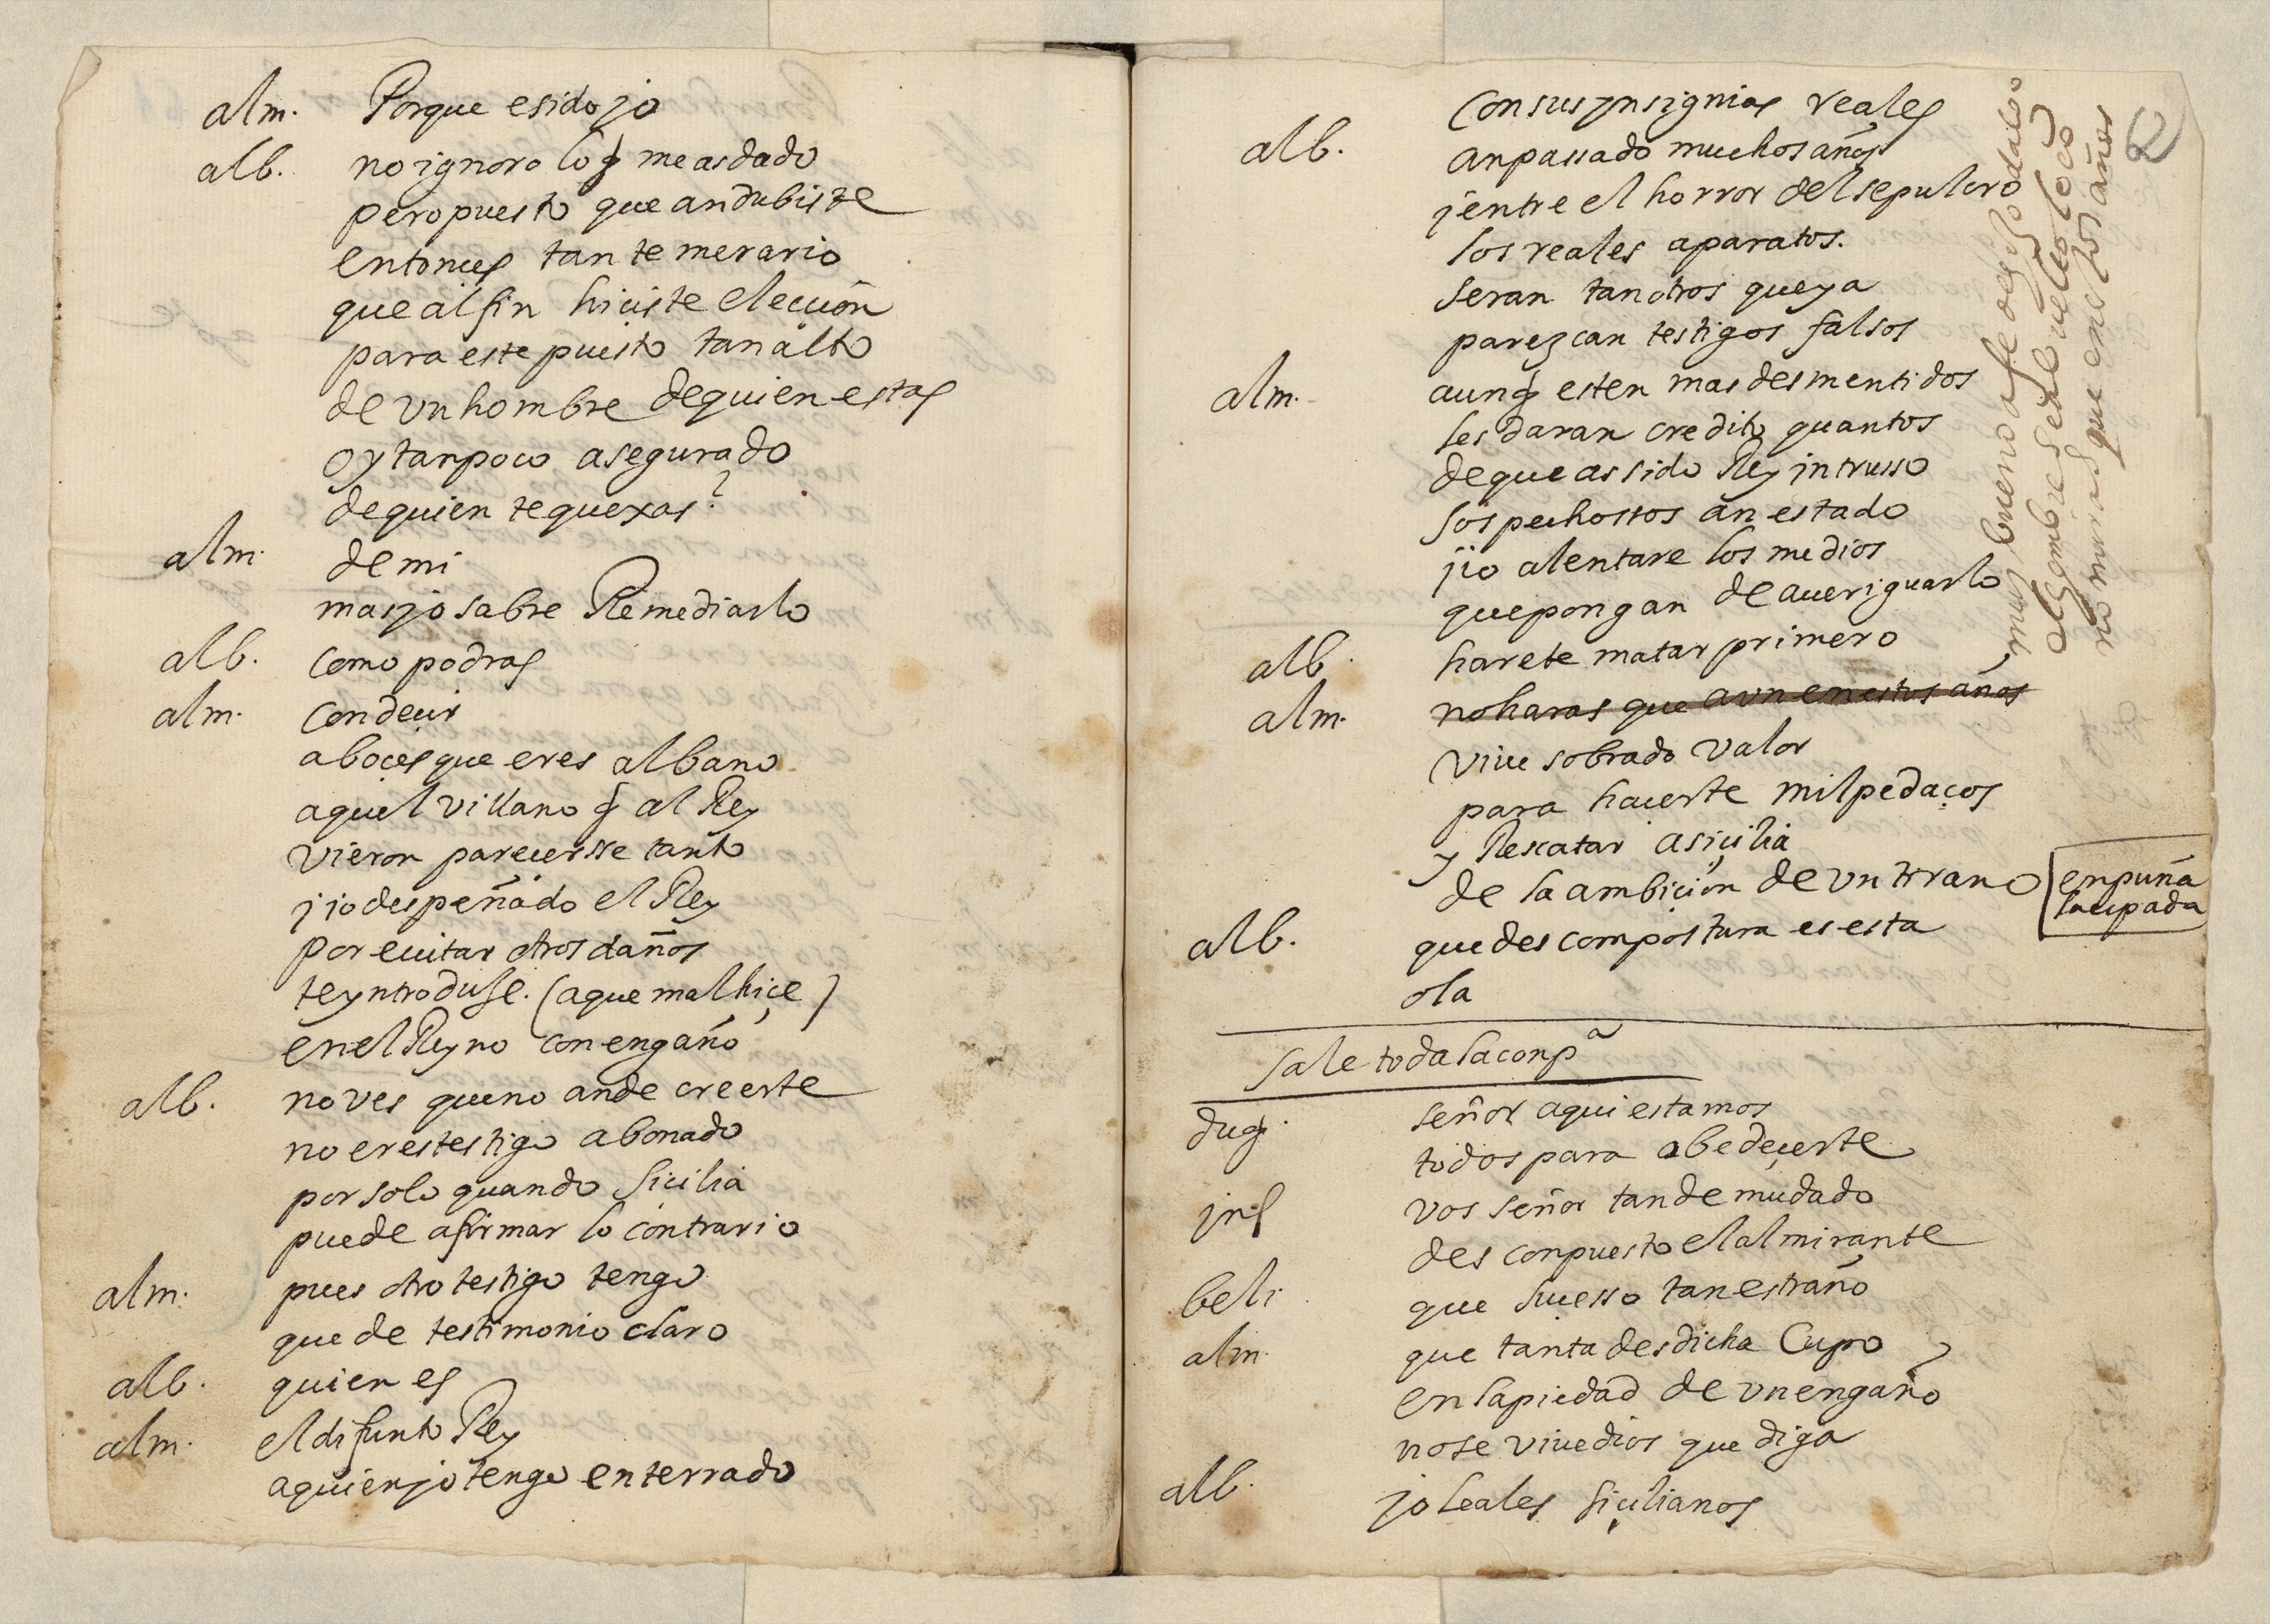 alm. Porque e sido jo
alb. no ignoro lo q̃ me as dado
pero puesto que andubiste
entonces tan temerario
que al fin hiciste eleccion
para este puesto tan alto
de vn hombre de quien estas
oy tan poco asegurado
de quien te quexas?
alm. de mi
mas jo sabre Remediarlo
alb. como podras
alm. con decir
a boçes que eres albano
aquel villano q̃ al Rey
vieron parecersse tanto
j io despeñado el Rey
por euitar otros daños
te yntroduse. (a que mal hiçe)
en el Reyno con engaño
alb. no ves que no an de creerte
no eres testigo abonado
por solo quando Sicilia
puede afirmar lo contrario
alm. pues otro testigo tengo
que de testimonio claro
alb. quien es
alm. el difunto Rey
a quien jo tengo enterrado
con sus ynsignias reales
alb. an passado muchos años
j entre el horror del sepulcro
los reales aparatos.
seran tan otros que ya
parezcan testigos falsos
alm. aunq̃ esten mas desmentidos
les daran credito quantos
de que as sido Rey intrusso
sospechossos an estado
j io alentare los medios
que pongan de aueriguarlo
alb. harete matar primero
alm. no haras que aun en estos años
viue sobrado valor
para hacerte mil pedaços
y Rescatar a siçilia
de la ambiçion de vn tirano
enpuña
la espada
alb. que descompostura es esta
ola
Sale toda la conpª
duq̃. señor aqui estamos
todos para obedeçerte
inf vos señor tan demudado
desconpuesto el almirante
beli que sucesso tan estraño
alm. que tanta desdicha Cupo
en la piedad de vn engaño
no se viue dios que diga
alb. jo leales siçilianos
muy bueno a fe de
el hombre se a buelto loco
no miras que en estos años